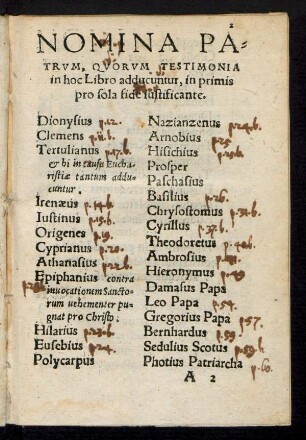 NOMINA PA-
TRVM, QVORVM TESTIMONIA
in hoc Libro adducuntur, in primis
pro sola fide iustificante.
Dionysius p.12.
Clemens p.12.b.
Tertulianus p.17.b.
& hi in causa Eucha-
ristiæ tantum addu-
cuntur.
Irenæus p.14.b.
Iustinus p.15.b.
Origenes p.19.
Cyprianus p.20.
Athanasius p.22.b.
Epiphanius contra
inuocationem Sancto-
rum uehementer pu-
gnat pro Christo.
Hilarius p.23.b.
Eusebius p.24.
Polycarpus
Nazianzenus p.24.b.
Arnobius p.25
Hisichius p.25.b.
Prosper
Paschasius
Basilius p.26.
Chrysostomus p.31.b.
Cyrillus p.37.b.
Theodoretus p.42.b.
Ambrosius
Hieronymus p.49
Damasus Papa
Leo Papa p.54.
Gregorius Papa p57.
Bernhardus p.59.
Sedulius Scotus p.59.b
Photius Patriarcha p.60.
A 2